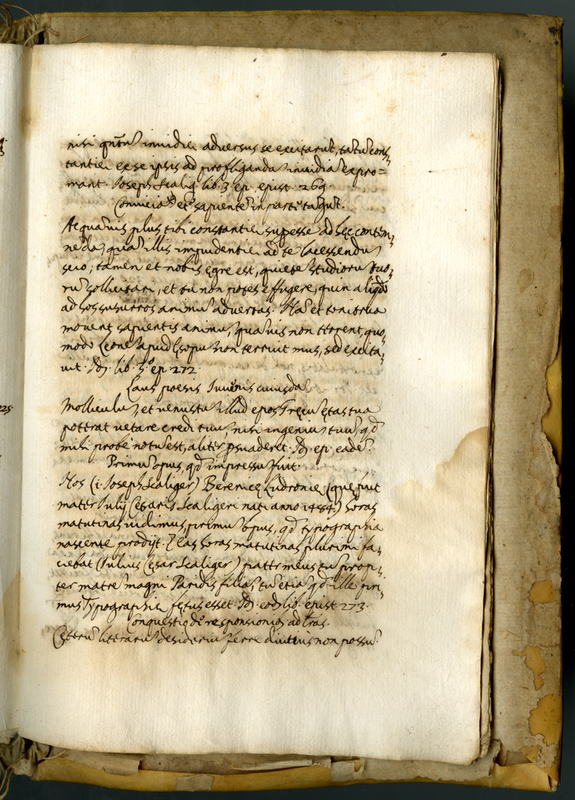 nisi qntu invidiae adversus se excitarut, tatu cons,
tantiae ex se ipsis ad profliganda invidia expro=
mant. Joseph. Scalig. lib. 3. ep. epist. 269
Convicia et sapiente
Aequavis plus tibi constantiae supesse ad hec contem,
neda, qua illis impudentiae ad te lacessendu
suo, tamen et nobis egre est, quiete studioru tuo,
ru sollicitari, et tu non potes effugere, quin aliqdo
ad hos susurros animu advertas. Na et tonitrua
movent sapientis animu, quavis non terreat, quo,
modo Leone apud Esopu non terruit mus, sed excita,
vit. Id. lib. 3. ep. 272.
Laus poesis Juvenis cuiusda
Molliculu, et venustu illud epos Grecu etas tua
potrat vetare credi tuu, nisi ingeniu tuu qd
mihi probe notu est, aliter psuaderet. Id. ep. eade.
Primu opus, qd impressu fuit
Nos (i. Joseph Scaliger) Berenice Ludroniae (que fuit
mater Julij Cesaris Scaligeri nati anno 1484) horas
matutinas vidimus, primu opus, qd typographia
nascente prodijt. Eas horas matutinas plurimi fa,
ciebat (Julius Cesar Scaliger) pater meus tu prop,
ter matre magni Paridis filia, tu etia qd ille pri,
mus Typographiae fetus esset. Id. eod. lib. epist. 273.
Conquestio de responsione ad lras.
Ceteru literaru desideriu ferre diutius non possu